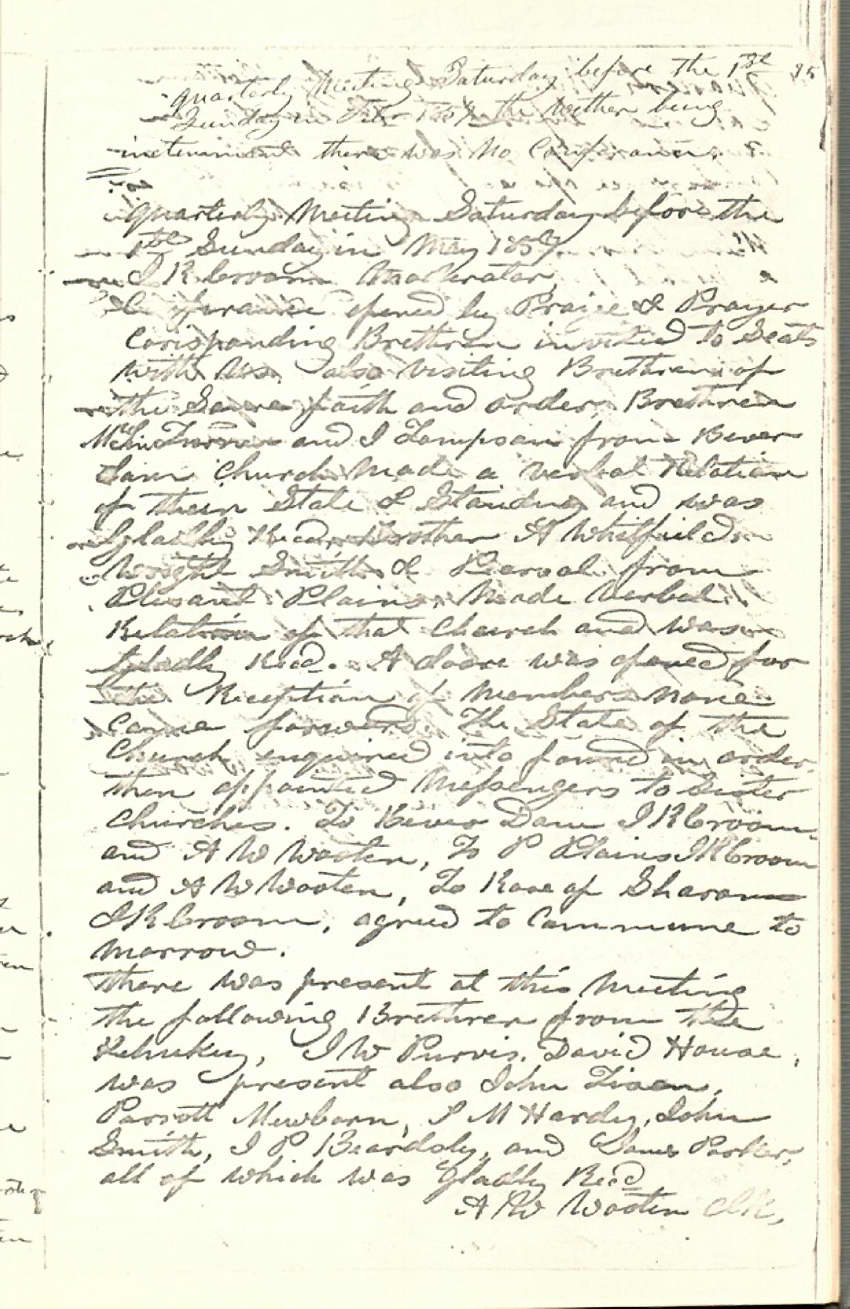 quarterly Meeting Saturday before the 1st 95
Sunday in Feb 1857 the Wether being
inclement there was No Conferance.
quarterly Meeting Saturday before the
1st Sunday in May 1857
J R Croom Moderator,
Conferance opened by Praise & Prayer
Corisponding Brethren invited to Seats
with us. also visiting Brethren of
the Same faith and order. Brethren
and I Tompson from Bever
Dam Church Made a verbal Relation
of their State & Standing and was
Gladly Recd, Brother A Whitfield
Wright Smith & from
Plesant Plains Made Verbal
Relation of that Church and was
gladly Recd. A doore was opened for
the Reception of Members none
Came forward. The State of the
Church enquired into found in order.
then appointed Messengers to Sister
Churches. To Bever Dam J R Croom
and A W Wooten, To P Plains J R Croom
and A W Wooten, To Rose of Sharon
J R Croom, agreed to Commune to
Morrow.
there was present at this Meeting
the following Brethren from the
Kehukey, J W Purvis. David House,
was present also John
Parrott Mewborn, P M Hardy, John
Smith, J P Beardsly, and James Parker,
all of which was gladly Recd
A W Wooten Clk,